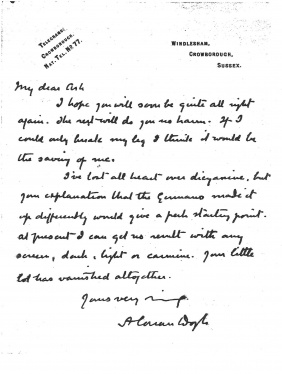 TELEGRAMS:
CROWBOROUGH.
NAT. TEL. NO. 77.
WINDLESHAM,
CROWBOROUGH,
SUSSEX.
My dear Ash
I hope you will soon be quite all right
again. The rest will do you no harm. If I
could only break my leg I think it would be
the saving of me.
I've lost all heart over dicyanine, but
your explanation that the Germans made it
up differently would give a fresh starting point.
At present I can get no result with any
screen, dark, light or carmine. Your little
lot has vanished altogether.
Yours very
A Conan Doyle